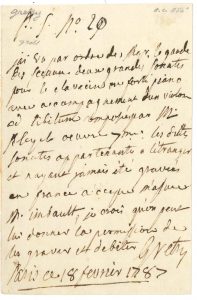 P. S. No. 20
j'ai vu par ordre de Mgr. le garde
des sceaux, deux grandes sonates
pour le clavecin ou forte piano
avec accompagnement d'un violon
ad libitum composées par Mr.
Pleyel œuvre les dittes
sonates appartenante a l'etranger
et n'ayant jamais été gravées
en france a ce que m'assure
Mr. imbault, je crois qu'on peut
lui donner la permission de
les graver et debiter Gretry
Paris ce 18 fevrier 1787